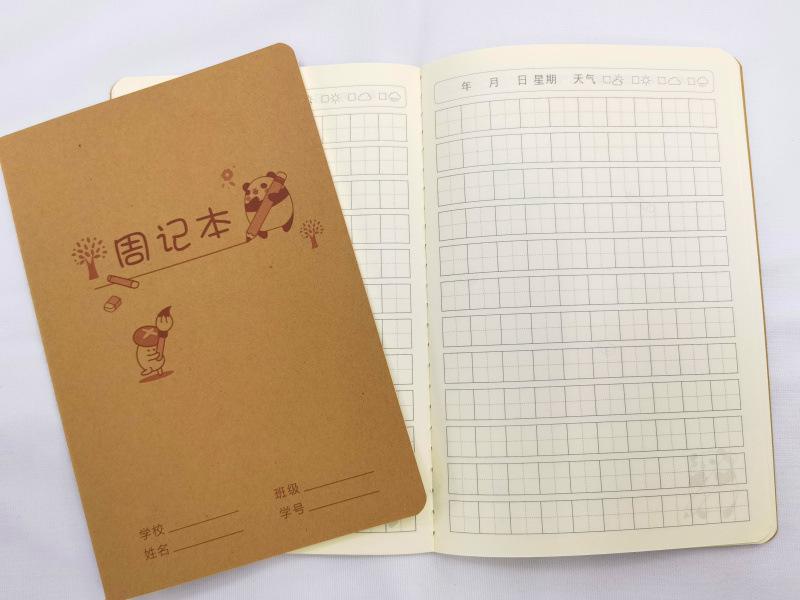 周记本
学校
班级
姓名
学号
年 月 日 星期 天气